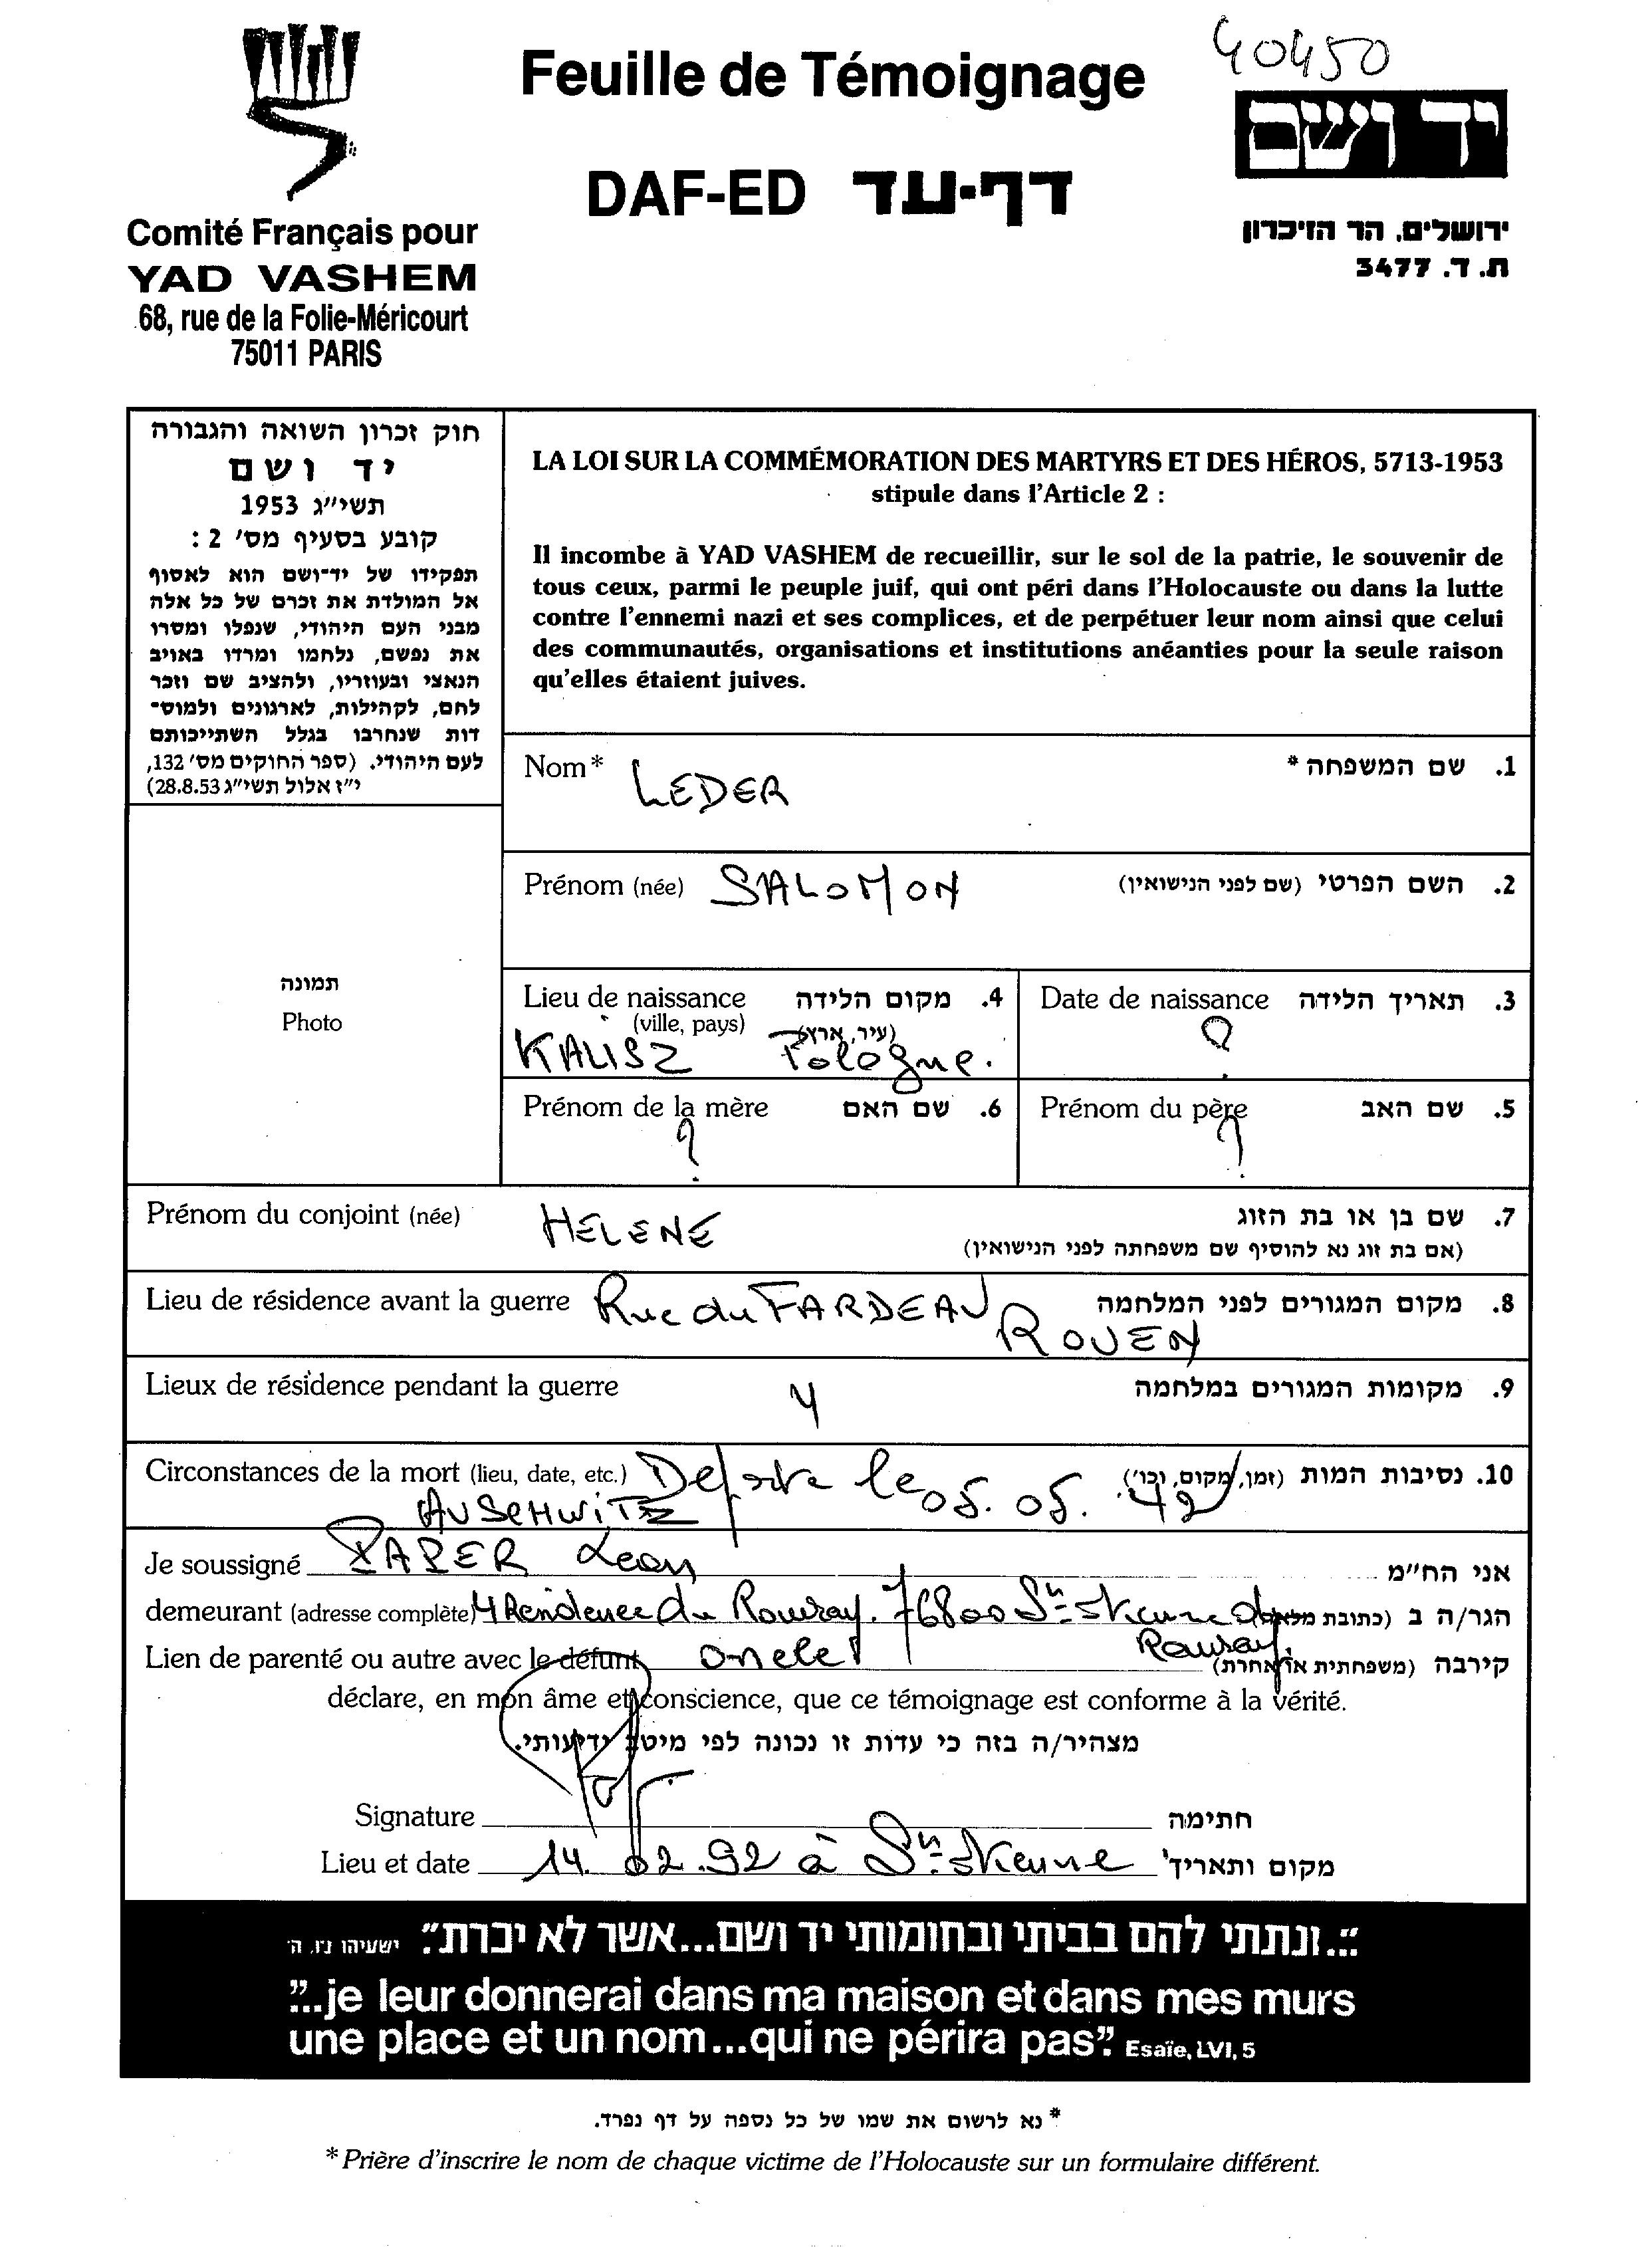 40450
Feuille de Témoignage
יד ושם
DAF-ED דף-עד
Comité Français pour
YAD VASHEM
68, rue de la Folie-Méricourt
75011 PARIS
ירושלים, הר הזיכרון
ת. ד. 3477
חוק זכרון השואה והגבורה
יד ושם
תשי״ג 1953
קובע בסעיף מס׳ 2 :
תפקידו של יד־ושם הוא לאסוף
אל המולדת את זכרם של כל אלה
מבני העם היהודי, שנפלו ומסרו
את נפשם, נלחמו ומרדו באויב
הנאצי ובעוזריו, ולהציב שם וזכר
להם, לקהילות, לארגונים ולמוס־
דות שנחרבו בגלל השתייכותם
לעם היהודי. (ספר החוקים מס׳ 132,
י״ז אלול תשי״ג 28.8.53)
LA LOI SUR LA COMMÉMORATION DES MARTYRS ET DES HÉROS, 5713-1953
stipule dans l'Article 2 :
Il incombe à YAD VASHEM de recueillir, sur le sol de la patrie, le souvenir de
tous ceux, parmi le peuple juif, qui ont péri dans l'Holocauste ou dans la lutte
contre l'ennemi nazi et ses complices, et de perpétuer leur nom ainsi que celui
des communautés, organisations et institutions anéanties pour la seule raison
qu'elles étaient juives.
תמונה
Photo
Nom* LEDER 1. שם המשפחה *
Prénom (née) SALOMON 2. השם הפרטי (שם לפני הנישואין)
Lieu de naissance 4. מקום הלידה
(ville, pays) (עיר, ארץ)
KALISZ Pologne.
Date de naissance 3. תאריך הלידה
?
Prénom de la mère 6. שם האם
?
Prénom du père 5. שם האב
?
Prénom du conjoint (née) HELENE 7. שם בן או בת הזוג
(אם בת זוג נא להוסיף שם משפחתה לפני הנישואין)
Lieu de résidence avant la guerre Rue du FARDEAU 8. מקום המגורים לפני המלחמה
ROUEN
Lieux de résidence pendant la guerre 9. מקומות המגורים במלחמה
Circonstances de la mort (lieu, date, etc.) Deporte le 05. 05. 42 10. נסיבות המות (זמן, מקום, וכו׳)
AUSCHWITZ
Je soussigné PAPER Leon אני הח״מ
demeurant (adresse complète) 4 Residence du Rouvray. 76800 St Etienne du הגר/ה ב (כתובת מלאה)
Rouvray.
Lien de parenté ou autre avec le défunt oncle קירבה (משפחתית או אחרת)
déclare, en mon âme et conscience, que ce témoignage est conforme à la vérité.
מצהיר/ה בזה כי עדות זו נכונה לפי מיטב ידיעותי.
Signature חתימה
Lieu et date 14. 02. 92 à St Etienne מקום ותאריך
"...ונתתי להם בביתי ובחומותי יד ושם...אשר לא יכרת". ישעיהו נו, ה׳
"...je leur donnerai dans ma maison et dans mes murs
une place et un nom...qui ne périra pas". Esaïe, LVI, 5
* נא לרשום את שמו של כל נספה על דף נפרד.
*Prière d'inscrire le nom de chaque victime de l'Holocauste sur un formulaire différent.